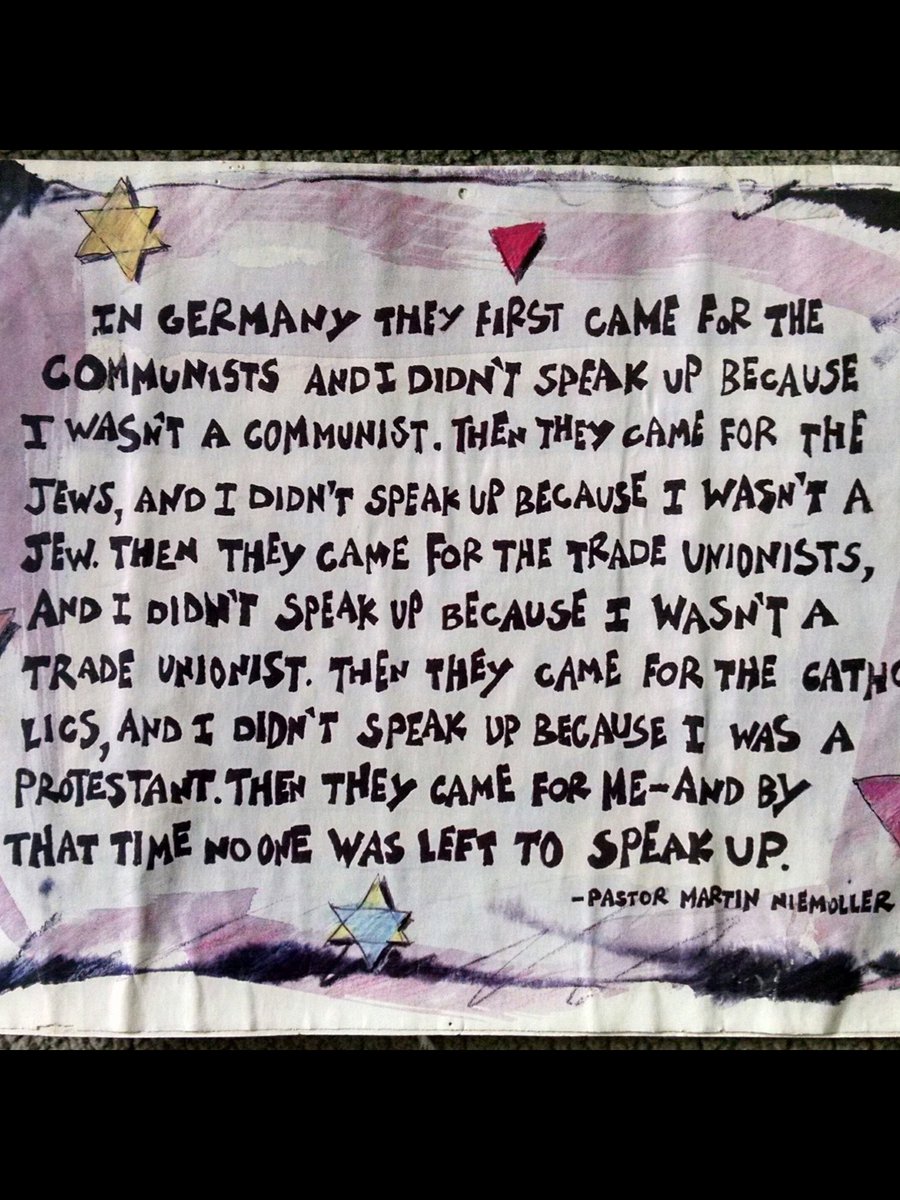 IN GERMANY THEY FIRST CAME FOR THE
COMMUNISTS AND I DIDN'T SPEAK UP BECAUSE
I WASN'T A COMMUNIST. THEN THEY CAME FOR THE
JEWS, AND I DIDN'T SPEAK UP BECAUSE I WASN'T A
JEW. THEN THEY CAME FOR THE TRADE UNIONISTS,
AND I DIDN'T SPEAK UP BECAUSE I WASN'T A
TRADE UNIONIST. THEN THEY CAME FOR THE CATHO
LICS, AND I DIDN'T SPEAK UP BECAUSE I WAS A
PROTESTANT. THEN THEY CAME FOR ME-AND BY
THAT TIME NO ONE WAS LEFT TO SPEAK UP.
-PASTOR MARTIN NIEMOLLER